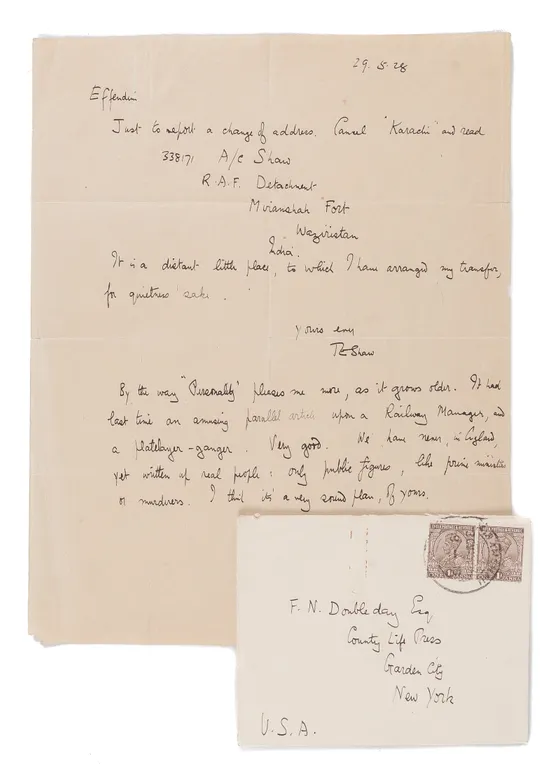 29.5.28
Effendim
Just to report a change of address. Cancel "Karachi" and read
338171 A/c Shaw
R.A.F. Detachment
Miranshah Fort
Waziristan
India.
It is a distant little place, to which I have arranged my transfer,
for quietness' sake.
Yours ever
TEShaw
By the way "Personality" pleases me more, as it grows older. It had
last time an amusing parallel article upon a Railway Manager, and
a platelayer-ganger. Very good. We have never, in England,
yet written of real people: only public figures, like prime ministers
or murderers. I think it's a very sound plan, of yours.
F. N. Doubleday Esq
Country Life Press
Garden City
New York
U.S.A.